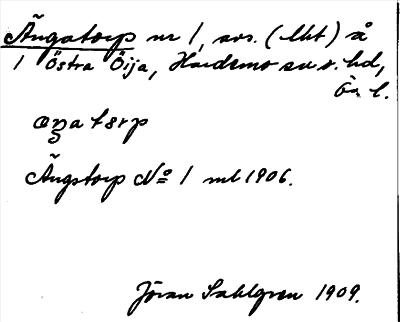 Ängatorp nr 1, avs. (lht) å
1 Östra Öija, Hardemo sn o. hd,
Ör. l.
aŋatɔrp
Ängstorp No 1 ml 1906.
Jöran Sahlgren 1909.